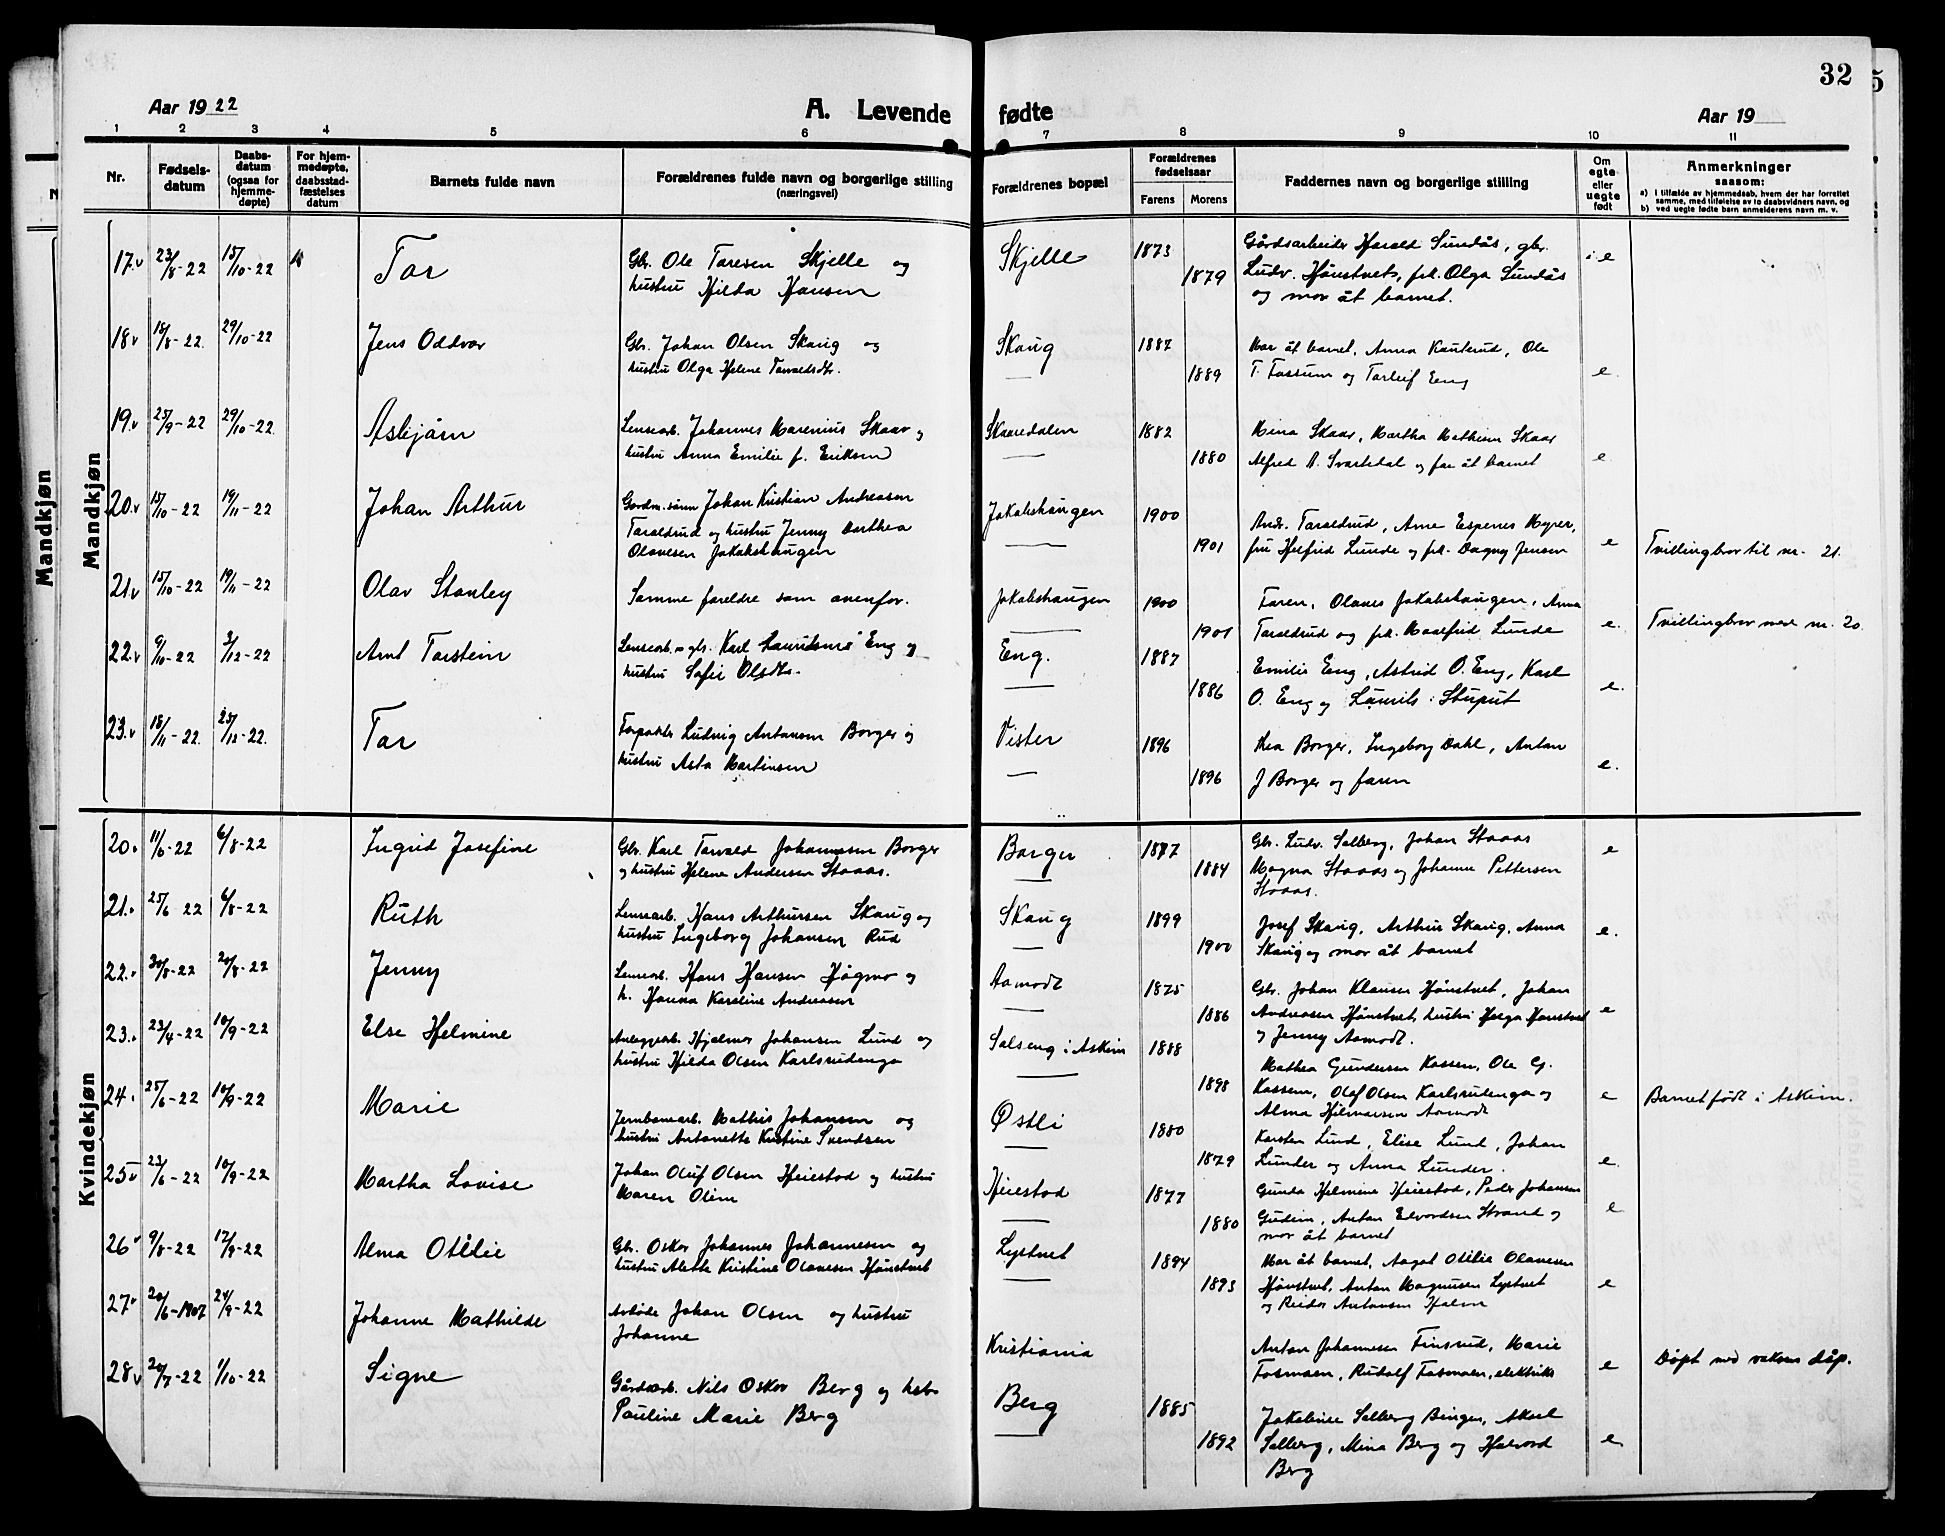 32
Aar 1922
A. Levende fødte
Aar 19
1 2 3 4 5 6 7 8 9 10 11
Nr.
Fødsels-
datum
Daabs-
datum
(ogsaa for
hjemme-
døpte)
For hjem-
medøpte,
daabsstad-
fæstelses
datum
Barnets fulde navn
Forældrenes fulde navn og borgerlige stilling
(næringsvei)
Forældrenes bopæl
Forældrenes
fødselsaar
Farens Morens
Faddernes navn og borgerlige stilling
Om
egte
eller
uegte
født
Anmerkninger
saasom:
a) I tilfælde av hjemmedaab, hvem der har forrettet
samme, med tilføielse av to daabsvidners navn, og
b) ved uegte fødte barn anmelderens navn m. v.
Mandkjøn
Mandkjøn
17. 23/8-22 15/10-22 Tor
Gbr. Ole Toresen Skjelle og
hustru Hilda Hansen
Skjelle 1873 1879
Gårdsarbeider Harald Sundås, gbr.
Ludv. Hønstvet, frk. Olga Sundås
og mor åt barnet.
e
18 18/8-22. 29/10-22 Jens Oddvar
Gbr. Johan Olsen Skaug og
hustru Olga Helene Torvaldsdtr.
Skaug 1887 1889
Mor åt barnet, Anna Kanterud, Ole
T. Fossum og Torleif Eng
e.
19. 25/9-22 29/10-22. Asbjørn
Lensearb. Johannes Marenius Skaar og
hustru Anna Emilie f. Eriksen
Skaaredalen 1882 1880
Mina Skaar, Martha Mathisen Skaar
Alfred A. Svartedal og far åt barnet
e.
20. 15/10-22 19/11-22 Johan Arthur
Gardm. sønn Johan Kristian Andreasen
Taraldrud og hustru Jenny Dorthea
Olavesen Jakobshaugen
Jakobshaugen 1900 1901
Andr. Taraldrud, Arne Espenes Myrer,
fru Helfrid Lunde og frk. Dagny Jensen
e Tvillingbror til nr. 21.
21. 15/10-22 19/11-22 Olav Stanley
Samme foreldre som ovenfor.
Jakobshaugen 1900 1901
Faren, Olaves Jakobshaugen, Anna
Taraldrud og frk. Maalfrid Lunde
e. Tvillingbror med nr. 20
22. 9/10-22 3/12-22 Arnt Torstein
Lensearb. og gbr. Karl Lauritsens Eng og
hustru Sofie Olsdtr.
Eng. 1887 1886
Emilie Eng, Astrid O. Eng, Karl
O. Eng og Laurits Stuput
e.
23. 18/11-22. 25/12-22. Tor
Forpakter Ludvig Antonsen Borger og
hustru Asta Martinsen
Vister 1896 1896
Thea Borger, Ingeborg Dahl, Anton
J Borger og faren
e.
Kvindekjøn
20. 11/6-22 6/8-22 Ingrid Josefine
Gbr. Karl Torvald Johannesen Borger
og hustru Helene Andersen Staaas.
Borger 1877 1884
Gbr. Ludv. Solberg, Johan Staaas
Magna Staaas og Johanne Pettersen
Staaas.
e
21. 25/6 22 6/8-22 Ruth
Lensearb. Hans Arthursen Skaug og
hustru Ingeborg Johansen Rud
Skaug 1899 1900
Josef Skaug, Arthur Skaug, Anna
Skaug og mor åt barnet
e.
22. 22 20/8-22 Jenny
Lensearb. Hans Hansen Høgmo og
h. Hanna Karoline Andreasen
Aamodt 1875 1886
Gbr. Johan Klausen Hønstvet, Johan
Andreasen Hønstvet, hustru Helga Hønstvet
og Jenny Aamodt.
e
23. 23/4-22 10/9-22 Else Helmine
Anleggsarb. Hjalmar Johansen Lund og
hustru Hilda Olsen Karlsrudenga
Solseng i Askim 1888 1898
Mathea Gundersen Kossen, Ole G.
Kossen, Olef Olsen Karlsrudenga og
Alma Hilmarsen Aamodt
e Barnet født i Askim.
24. 25/6-22 10/9-22 Marie
Jernbanearb. Mathis Johansen og
hustru Antonette Kristine Svendsen
Østli 1880 1879
Karsten Lund, Elise Lund, Johan
Lunder og Anna Lunder.
e.
25 23/6-22 10/9-22 Martha Lovise
Johan Oluf Olsen Heiestad og hustru
Maren Oline
Heiestad 1877 1880
Gunda Helmine Heiestad, Peder Johansen
Gudim, Anton Edvardsen Strand og
mor åt barnet
e
26 9/8-22 17/9-22 Alma Otilie
Gbr. Oskar Johannes Johannesen og
hustru Alette Kristine Olavesen Hønstvet
Lystvet 1894 1893
Mor åt barnet, Aagot Otilie Olavesen
Hønstvet, Anton Magnusen Lystvet
og Reidar Antonsen Holm
e
27 20/6-1907 24/9-22 Johanne Mathilde
Avdøde Johan Olsen og hustru
Johanne
Kristiania
Anton Johannesen Finsrud, Marie
Fosmoen, Rudolf Fosmoen, elektriker
e Døpt med voksen dåp.
28 20/7-22 1/10-22 Signe
Gårdsarb. Nils Oskar Berg og hstr
Pauline Marie Berg
Berg 1885 1892
Jakobine Solberg Binger, Aksel
Solberg, Mina Berg og Halvord
Berg
e